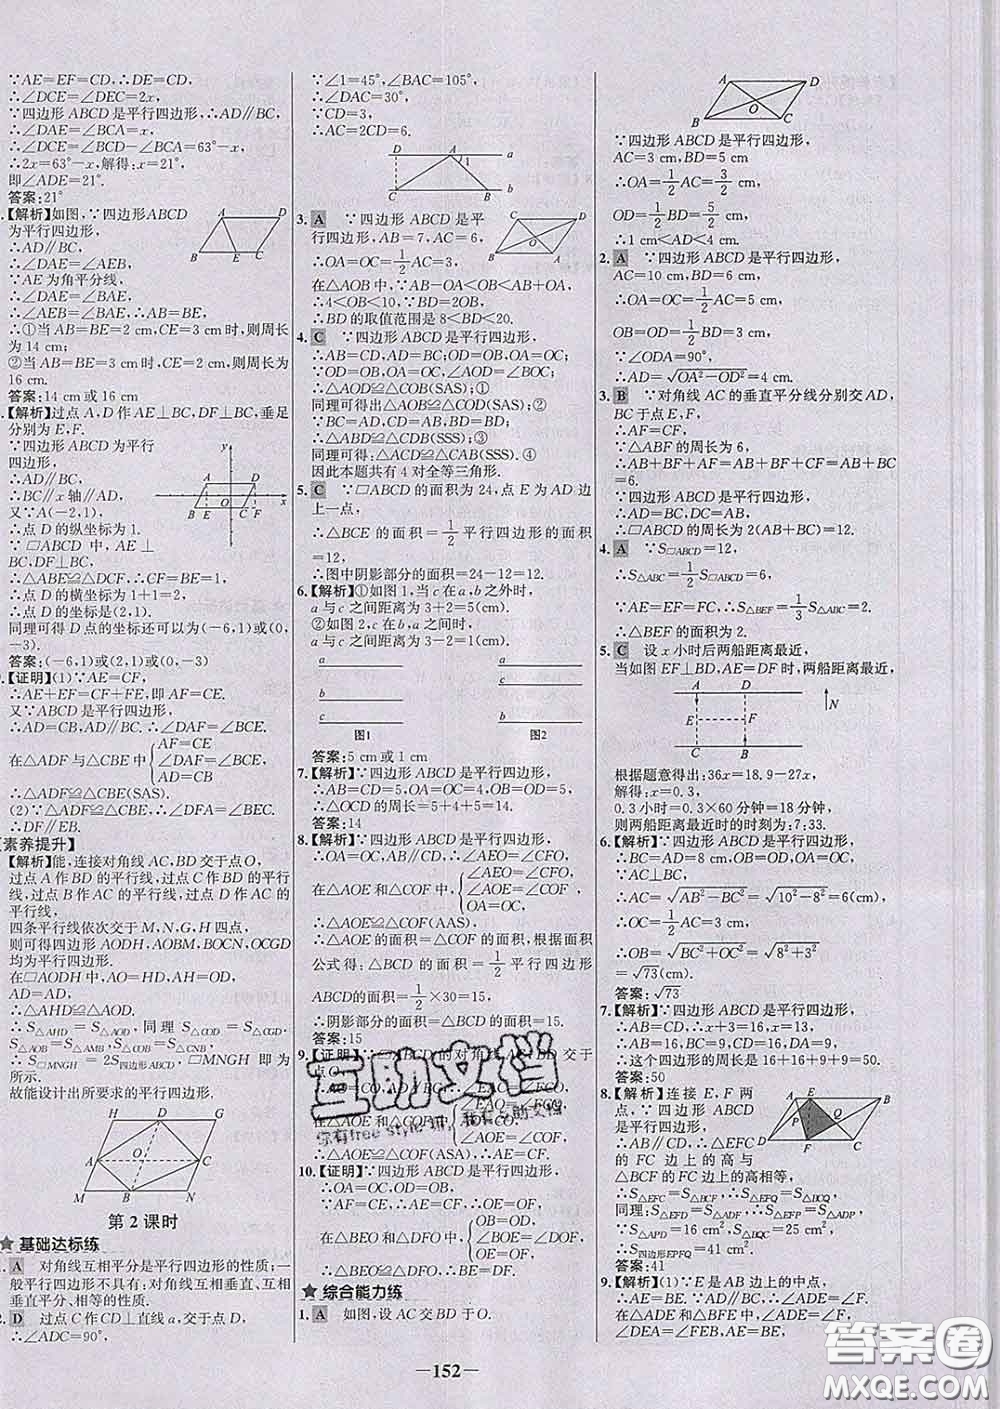 ∵AE=EF=CD,∴DE=CD,
∴∠DCE=∠DEC=2x,
∵四边形ABCD是平行四边形,∴AD∥BC,
∴∠DAE=∠BCA=x,
∴∠DAE=∠BCD-∠BCA=63°-x,
∴2x=63°-x,解得:x=21°,
即∠ADE=21°.
答案:21°
【解析】如图,∵四边形ABCD
为平行四边形,
∴AD∥BC,
∴∠DAE=∠AEB,
∵AE为角平分线,
∴∠DAE=∠BAE,
∴∠AEB=∠BAE,∴AB=BE,
∴①当AB=BE=2 cm,CE=3 cm时,则周长
为14 cm;
②当AB=BE=3 cm时,CE=2 cm,则周长为
16 cm.
答案:14 cm或16 cm
【解析】过点A,D作AE⊥BC,DF⊥BC,垂足
分别为E,F.
∵四边形ABCD为平行
四边形,
∴AD∥BC,
∴BC∥x轴∥AD,
又∵A(-2,1),
∴点D的纵坐标为1.
∵□ABCD中,AE⊥
BC,DF⊥BC,
∴△ABE≌△DCF,∴CF=BE=1,
∴点D的横坐标为1+1=2,
∴点D的坐标是(2,1).
同理可得D点的坐标还可以为(-6,1)或(0,
-3).
答案:(-6,1)或(2,1)或(0,-3)
【证明】(1)∵AE=CF,
∴AE+EF=CF+FE,即AF=CE.
又∵ABCD是平行四边形,
∴AD=CB,AD∥BC,∴∠DAF=∠BCE.
在△ADF与△CBE中{AF=CE
∠DAF=∠BCE,
AD=CB
∴△ADF≌△CBE(SAS).
(2)∵△ADF≌△CBE,∴∠DFA=∠BEC.
∴DF∥EB.
【素养提升】
【解析】能,连接对角线AC,BD交于点O,
过点A作BD的平行线,过点C作BD的平行
线,过点B作AC的平行线,过点D作AC的
平行线,
四条平行线依次交于M,N,G,H四点,
则可得四边形AODH,AOBM,BOCN,OCGD
均为平行四边形.
在□AODH中,AO=HD,AH=OD,
AD=AD,
∴△AHD≌△AOD.
∴S△AHD=S△AOD,同理S△COD=S△CGD,
S△AOB=S△AMB,S△COB=S△CNB,
∴S□MNGH=2S四边形ABCD,□MNGH即为
所示.
故能设计出所要求的平行四边形.
H D G
A O C
M B N
第2课时
★ 基础达标练
1. A 对角线互相平分是平行四边形的性质;一
般平行四边形不具有:对角线互相垂直、互相
垂直平分、相等的性质.
2. D 过点C作CD⊥直线a,交于点D,
∴∠ADC=90°,
∵∠1=45°,∠BAC=105°,
∴∠DAC=30°,
∵CD=3,
∴AC=2CD=6.
D A a
1
C B b
3. A ∵四边形ABCD是平
行四边形,AB=7,AC=6,
∴OA=OC=1/2AC=3,
在△AOB中,∵AB-OA<OB<AB+OA,
∴4<OB<10,∵BD=2OB,
∴BD的取值范围是8<BD<20.
4. C ∵四边形ABCD是平行四边形,
∴AB=CD,AD=BC;OD=OB,OA=OC;
∵OD=OB,OA=OC,∠AOD=∠BOC;
∴△AOD≌△COB(SAS);①
同理可得出△AOB≌△COD(SAS);②
∵BC=AD,CD=AB,BD=BD;
∴△ABD≌△CDB(SSS);③
同理可得:△ACD≌△CAB(SSS).④
因此本题共有4对全等三角形.
5. C ∵□ABCD的面积为24,点E为AD边
上一点,
∴△BCE的面积=1/2平行四边形的面积
=12,
∴图中阴影部分的面积=24-12=12.
6.【解析】①如图1,当c在a,b之外时,
a与c之间距离为3+2=5(cm).
②如图2,c在b,a之间时,
a与c之间距离为3-2=1(cm).
a a
b c
c b
图1 图2
答案:5 cm或1 cm
7.【解析】∵四边形ABCD是平行四边形,
∴AB=CD=5,OA=OC=4,OB=OD=5,
∴△OCD的周长=5+4+5=14.
答案:14
8.【解析】∵四边形ABCD是平行四边形,
∴OA=OC,AD∥BC,∴∠AEO=∠CFO,
在△AOE和△COF中,{∠AEO=∠CFO,
∠AOE=∠COF,
OA=OC,
∴△AOE≌△COF(AAS),
∴△AOE的面积=△COF的面积,根据面积
公式得:△BCD的面积=1/2平行四边形
ABCD的面积=1/2×30=15,
∴阴影部分的面积=△BCD的面积=15.
答案:15
9.【证明】∵□ABCD的对角线AC,BD交于
点O,
∠AOE=∠COF
∴△AOE≌△COF(ASA),∴OE=OF.
10.【证明】∵四边形ABCD是平行四边形,
∴OA=OC,OB=OD,
∵AF=CE,∴AE=CF,∴OE=OF,
在△BEO和△DFO中,{OB=OD,
∠BOE=∠DOF,
OE=OF,
∴△BEO≌△DFO,∴BE=DF.
★ 综合能力练
1. A 如图,设AC交BD于O.
∵四边形ABCD是平行四边形,
AC=3 cm,BD=5 cm
∴OA=1/2AC=3/2 cm,
OD=1/2BD=5/2 cm,
∴1 cm<AD<4 cm.
2. A ∵四边形ABCD是平行四边形,
AC=10 cm,BD=6 cm,
∴OA=OC=1/2AC=5 cm,
OB=OD=1/2BD=3 cm,
∵∠ODA=90°,
∴AD=√(OA²-OD²)=4 cm.
3. B ∵对角线AC的垂直平分线分别交AD,
BC于点E,F,
∴AF=CF,
∵△ABF的周长为6,
∴AB+BF+AF=AB+BF+CF=AB+BC
=6.
∵四边形ABCD是平行四边形,
∴AD=BC,AB=CD,
∴□ABCD的周长为2(AB+BC)=12.
4. A ∵S□ABCD=12,
∴S△ABC=1/2S□ABCD=6,
∵AE=EF=FC,∴S△BEF=1/3S△ABC,
∴△BEF的面积为2.
5. C 设x小时后两船距离最近,
当如图EF⊥BD,AE=DF时,两船距离最近,
A D
E F N
C B
根据题意得出:36x=18.9-27x,
解得:x=0.3,
0.3小时=0.3×60分钟=18分钟,
则两船距离最近时的时刻为:7:33.
6.【解析】∵四边形ABCD是平行四边形,
∴BC=AD=8 cm,OB=OD,OA=OC,
∵AC⊥BC,
∴AC=√(AB²-BC²)=√(10²-8²)=6(cm),
∴OC=1/2AC=3 cm,
∴OB=√(BC²+OC²)=√(8²+3²)
=√73(cm).
答案:√73
7.【解析】∵四边形ABCD是平行四边形,
∴AB=CD,∴x+3=16,∴x=13,
∵AB=16,BC=9,CD=16,DA=9,
∴这个四边形的周长是16+16+9+9=50.
答案:50
8.【解析】连接E,F两
点,∵四边形ABCD是
平行四边形,
∴AB∥CD,∴△EFC
的FC边上的高与
△BCF的FC边上的高相等,
∴S△EFC=S△BCF,∴S△EFQ=S△BCQ,
同理:S△EFD=S△ADF,∴S△EFP=S△ADP,
∵S△APD=16 cm²,S△BQC=25 cm²,
∴S四边形EPFQ=41 cm².
答案:41
9.【解析】(1)∵E是AB边上的中点,
∴AE=BE.∵AD∥BC,∴∠ADE=∠F.
在△ADE和△BFE中,∠ADE=∠F,
∠DEA=∠FEB,AE=BE,
—152—
互助文档
你有free style 吗,我有互助文档
答案圈
MXQE.COM